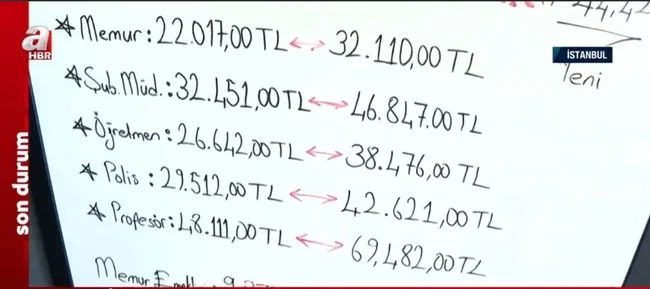 44,42
* Memur : 22.017,00 TL ↔ 32.110,00 TL
a
HBR
İSTANBUL
Yeni
* Şub. Müd. : 32.451,00 TL ↔ 46.847.00 TL
* Öğretmen : 26.642,00 TL ↔ 38.476,00 TL
* Polis : 29.512,00 TL ↔ 42.621,00 TL
* Profesör : 48.111,00 TL ↔ 69.482,00 TL
Memur
son durum